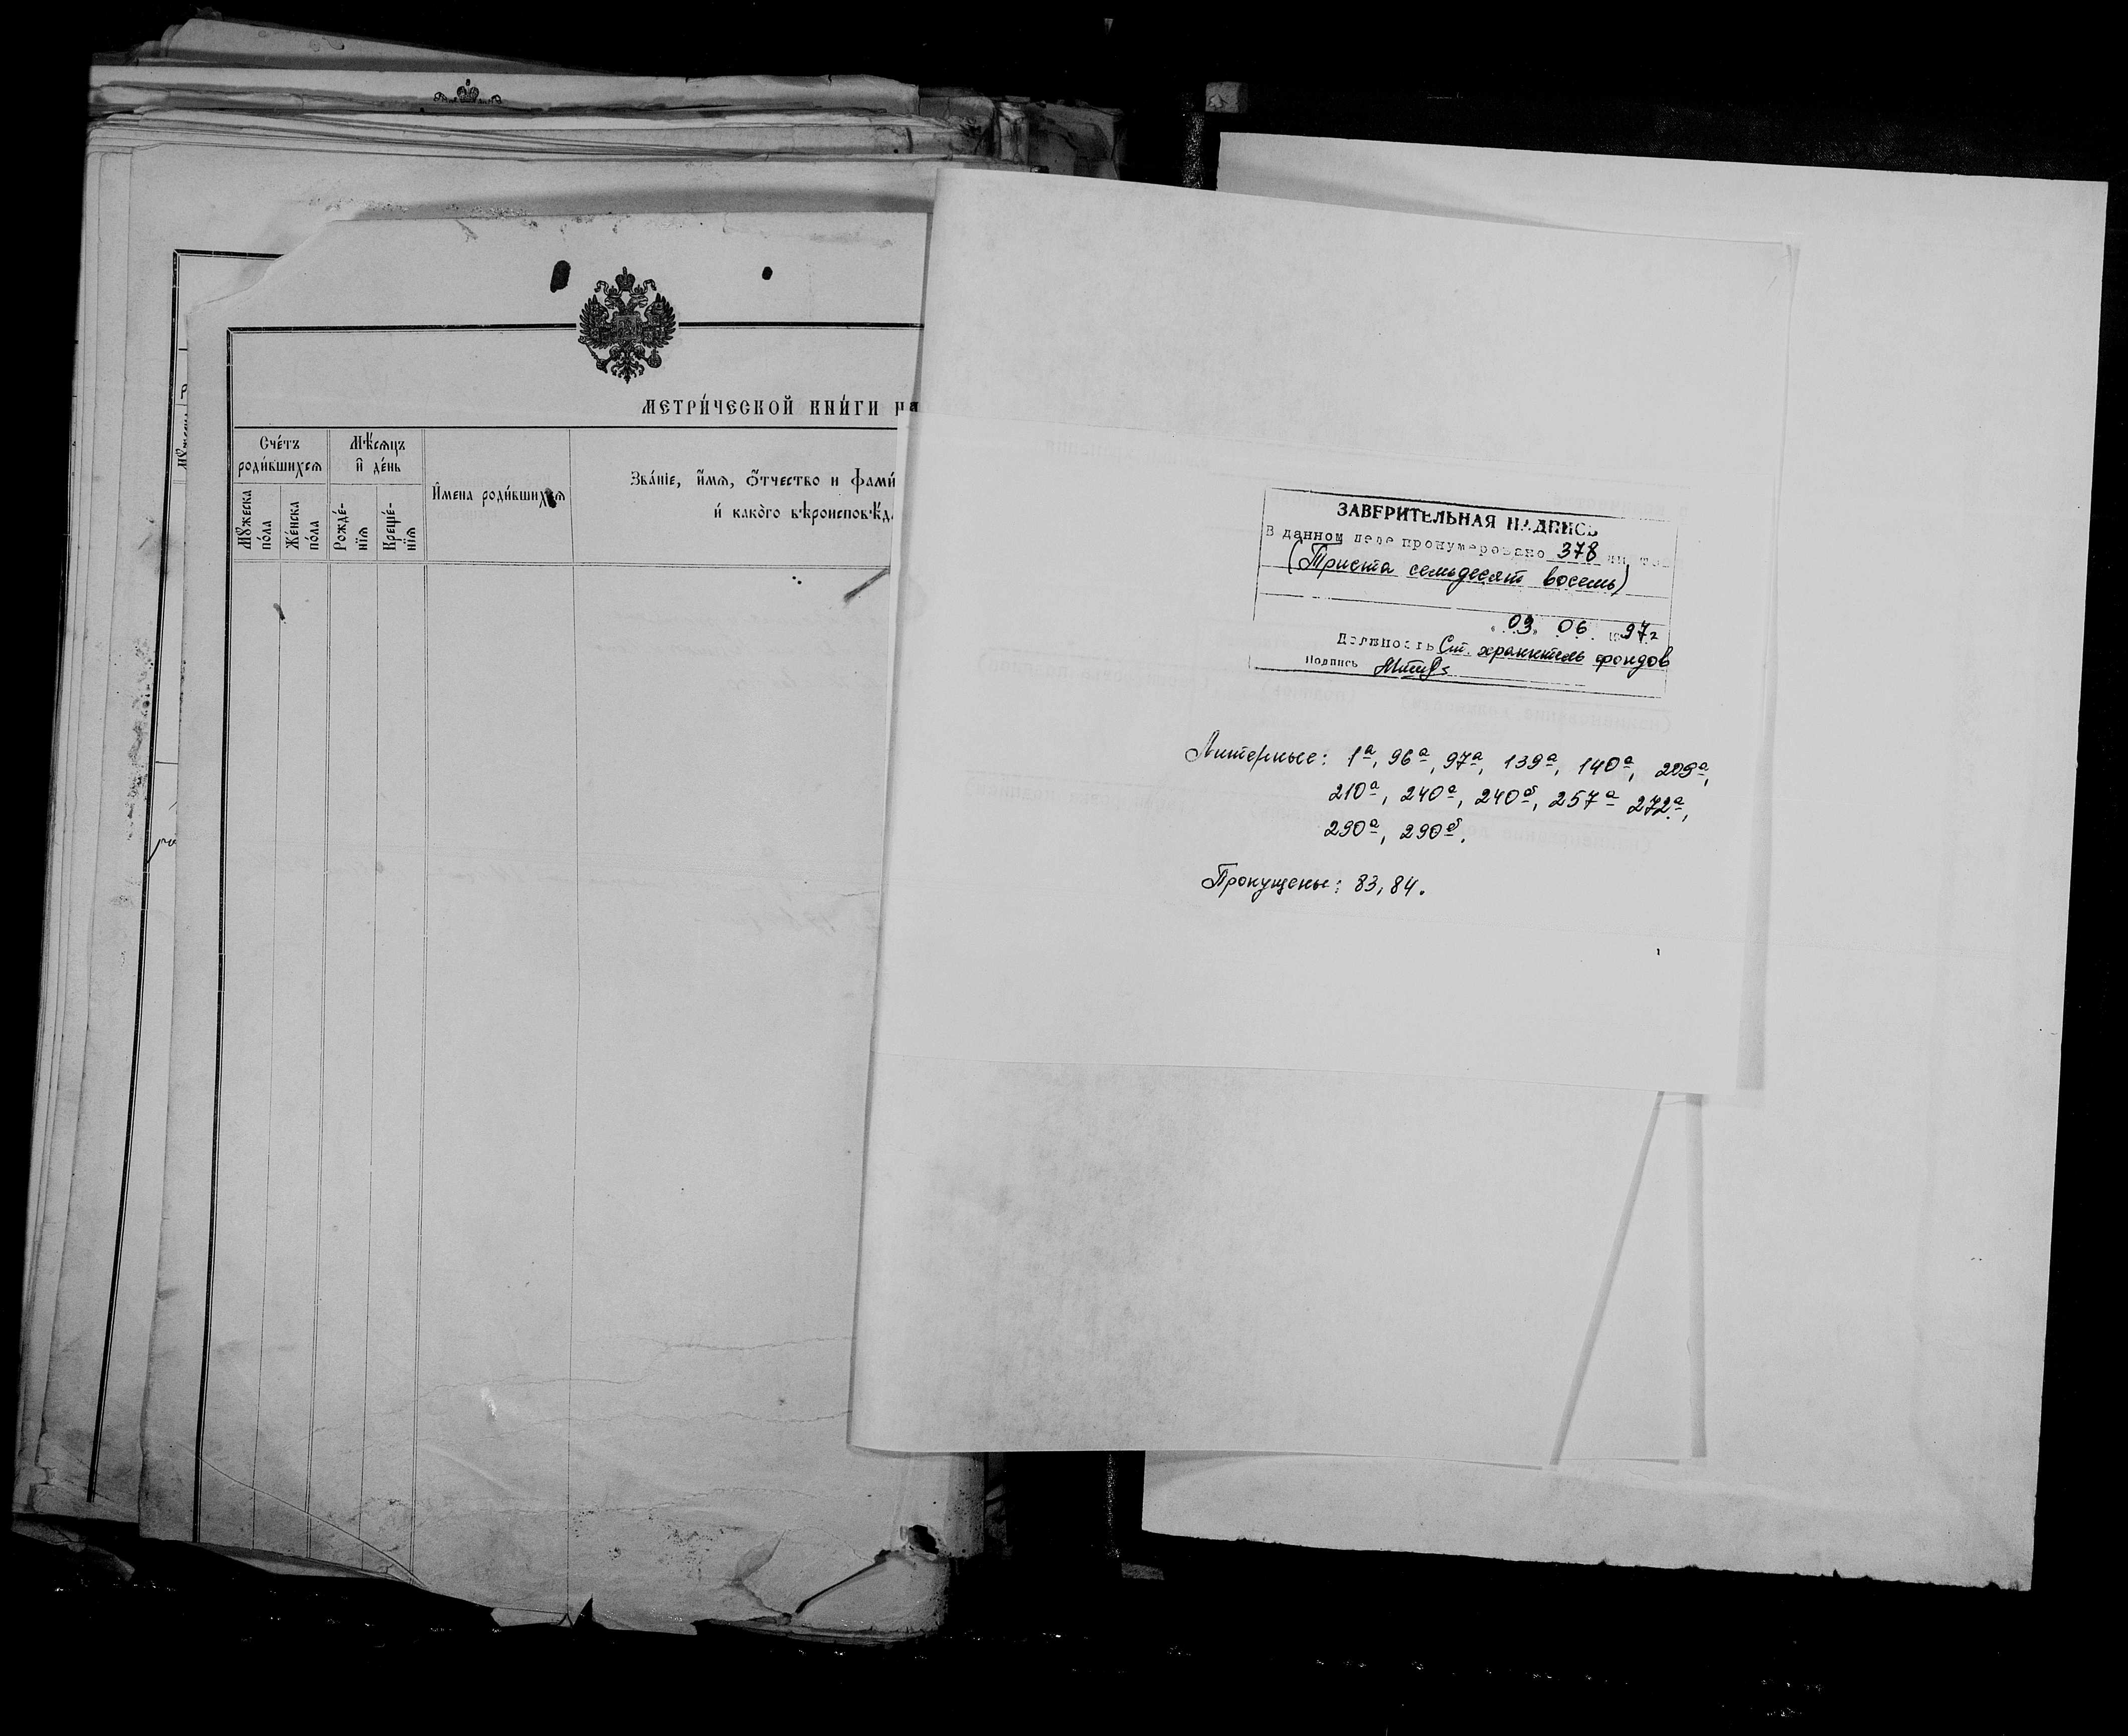 МЕТРИ́ЧЕСКОЙ КНИ́ГИ НА
Сче́тъ
роди́вшихсѧ
Мѣ́сѧцъ
и҆ де́нь
И҆мена роди́вшихсѧ
Зва́нїе, и҆́мѧ, ѻ҆́тчество и фами́
и҆ како́го вѣроисповѣ́д
Мꙋ́жеска
по́ла
Же́нска
по́ла
Рожде́-
нїѧ
Креще́-
нїѧ
ЗАВЕРИТЕЛЬНАЯ НАДПИСЬ
В данном деле пронумеровано 378
(Триста семьдесят восемь)
"03" 06 1997г
Должность Ст. хранитель фондов
Подпись
Литерные: 1а, 96а, 97а, 139а, 140а, 209а,
210а, 240а, 240б, 257а 272а,
290а, 290б.
Пропущены: 83, 84.